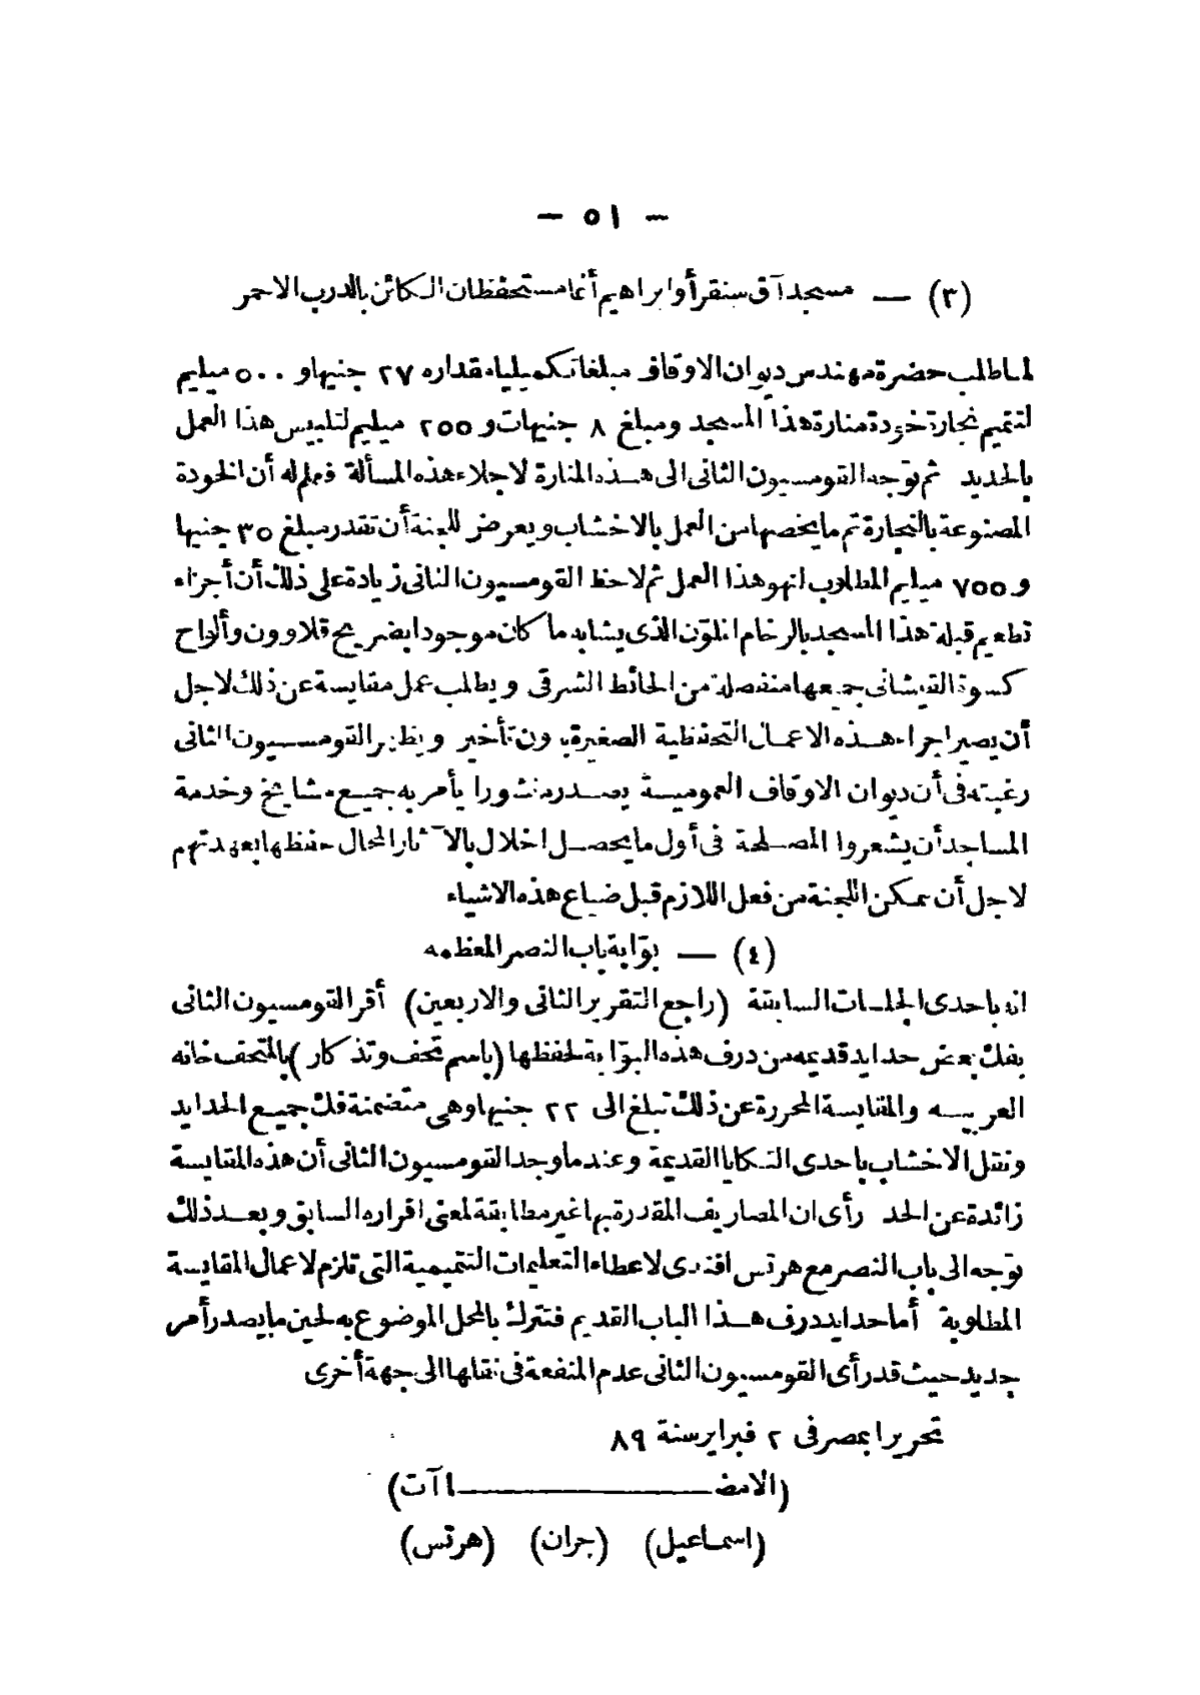 — ٥١ —
(٣) — مسجد آق سنقر أو ابراهيم أغا مستحفظان الكائن بالدرب الاحمر
لما طلب حضرة مهندس ديوان الاوقاف مبلغا تكميليا مقداره ٢٧ جنيها و ٥٠٠ ميليم
لتتميم نجارة خودة منارة هذا المسجد ومبلغ ٨ جنيهات و ٢٥٥ ميليم لتلبيس هذا العمل
بالحديد ثم توجه القومسيون الثانى الى هذه المنارة لاجلاء هذه المسألة فعلم له أن الخودة
المصنوعة بالنجارة تم ما يخصها من العمل بالاخشاب ويعرض للجنة أن تقدر مبلغ ٣٥ جنيها
و ٧٥٥ ميليم المطلوب انهو هذا العمل ثم لاحظ القومسيون الثانى زيادة على ذلك أن أجزاء
تطعيم قبلة هذا المسجد بالرخام الملوّن الذى يشابه ما كان موجودا بضريح قلاوون وألواح
كسوة القيشانى جميعها منفصلة من الحائط الشرقى ويطلب عمل مقايسة عن ذلك لاجل
أن يصير اجراء هذه الاعمال التحفظية الصغيرة بدون تأخير ويظهر القومسيون الثانى
رغبته فى أن ديوان الاوقاف العمومية يصدر منشورا يأمر به جميع مشايخ وخدمة
المساجد أن يشعروا المصلحة فى أول ما يحصل اخلال بالآثار المحال حفظها بعهدتهم
لاجل أن تمكن اللجنة من فعل اللازم قبل ضياع هذه الاشياء
(٤) — بوّابة باب النصر المعظمه
انه باحدى الجلسات السابقة (راجع التقرير الثانى والاربعين) أقر القومسيون الثانى
بفك بعض حدايد قديمه من درف هذه البوّابة لحفظها (باسم تحف وتذكار) بالمتحف خانه
العربيه والمقايسة المحررة عن ذلك تبلغ الى ٢٢ جنيها وهى متضمنة فك جميع الحدايد
ونقل الاخشاب باحدى التكايا القديمة وعندما وجد القومسيون الثانى أن هذه المقايسة
زائدة عن الحد رأى ان المصاريف المقدرة بها غير مطابقة لمعنى اقراره السابق وبعد ذلك
توجه الى باب النصر مع هرتس افندى لاعطاء التعليمات التتميمية التى تلزم لاعمال المقايسة
المطلوبة أما حدايد درف هذا الباب القديم فتترك بالمحل الموضوع به لحين ما يصدر أمر
جديد حيث قد رأى القومسيون الثانى عدم المنفعة فى نقلها الى جهة أخرى
تحريرا بمصر فى ٢ فبراير سنة ٨٩
(الامضـــــــــاآت)
(اسماعيل) (جران) (هرتس)